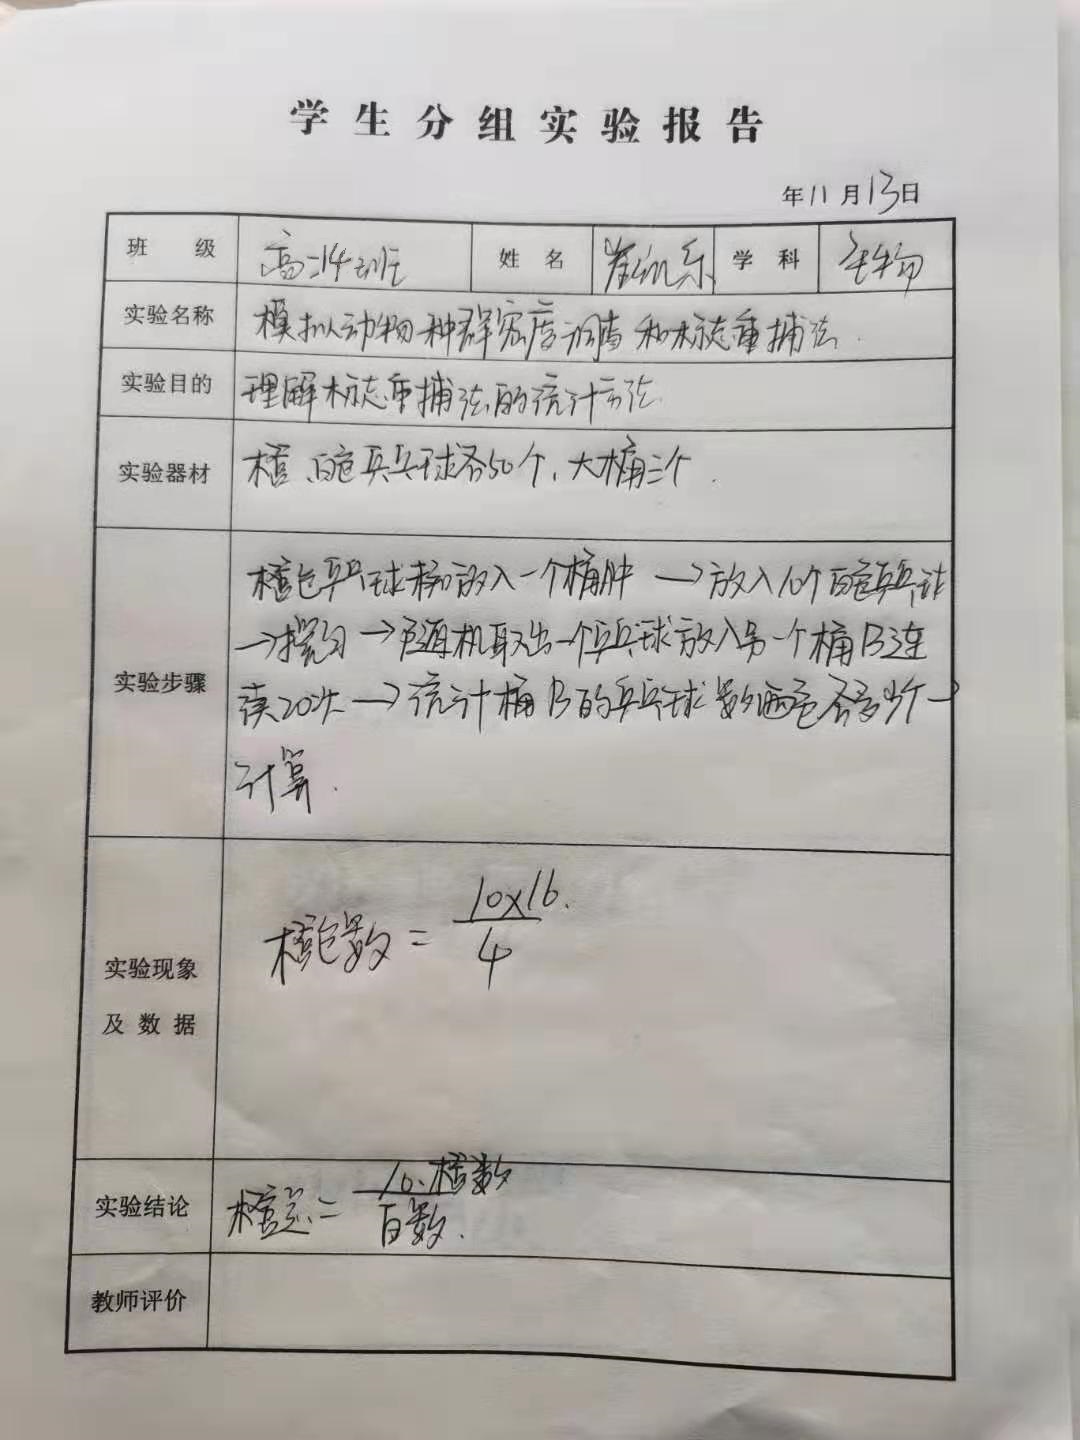 学生分组实验报告
年11月13日
班 级 高二14班 姓名 学科 生物
实验名称 模拟动物种群密度调查和标志重捕法.
实验目的 理解标志重捕法的统计方法.
实验器材 橙、白色乒乓球各50个、大桶三个.
橙色乒乓球 放入一个桶中 →放入10个白色乒乓球
→摇匀→ 随机取出一个乒乓球放入另一个桶B连
实验步骤 续20次→统计桶B的乒乓球数两色各多少个→
计算.
橙色数= 10×16. / 4
实验现象
及数据
实验结论 橙总= 10·橙数 / 白数.
教师评价